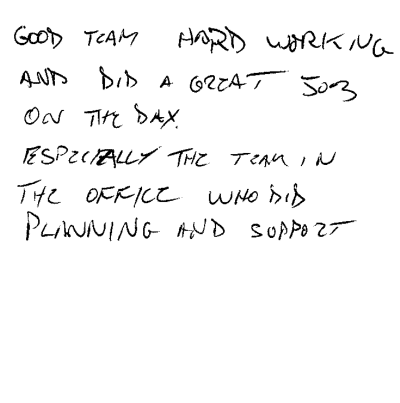 GOOD TEAM HARD WORKING
AND DID A GREAT JOB
ON THE DAY.
ESPECIALLY THE TEAM IN
THE OFFICE WHO DID
PLANNING AND SUPPORT